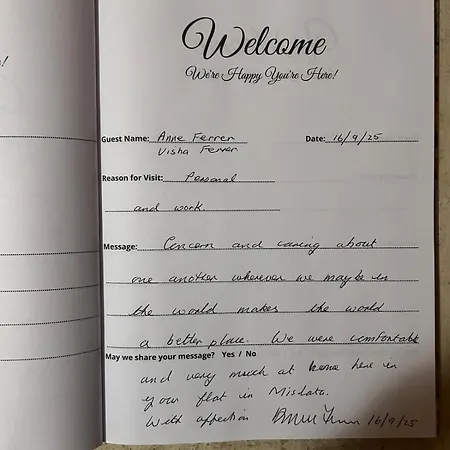 Welcome
We're Happy You're Here!
Guest Name: Anne Ferrer
Visha Ferrer
Date: 16/9/25
Reason for Visit: Personal
and work.
Message: Concern and caring about
one another wherever we maybe in
the world makes the world
a better place. We were comfortable
May we share your message? Yes / No
and very much at home here in
your flat in Misdata.
With affection 16/9/25